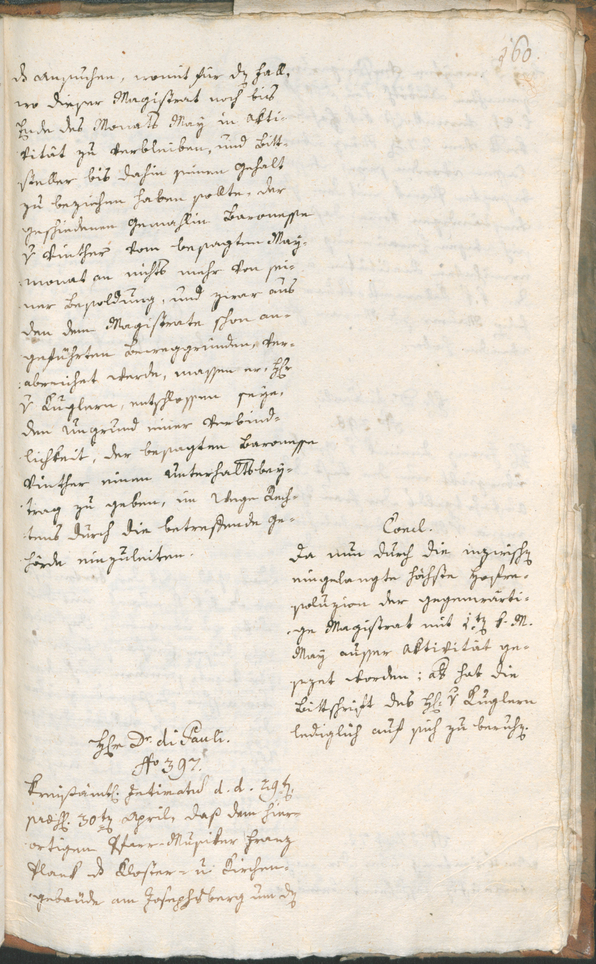 160.
de Ansuchen, womit für dz Fall,
wo dieser Magistrat noch bis
Ende des Monats May in Akti-
vität zu verbleiben, und Bitt-
steller bis dahin seinen Gehalt
zu beziehen haben sollte, der
geschiedenen Gemahlin Baronesse
v Vinther vom besagten May-
monat an nichts mehr von sei-
ner Besoldung, und zwar aus
den dem Magistrate schon an-
geführten Beweggründen ver-
abreichet werde, massen er, Hr
v Kuglern, entschlossen seye,
den Ungrund einer Verbind-
lichkeit, der besagten Baronesse
Vinther einen Unterhaltsbey-
trag zu geben, im Wege Rech-
tens durch die betreffende Be-
hörde einzuleiten.
Concl.
Da nun durch die inzwischen
eingelangte höchste Hofre-
soluzion der gegenwärti-
ge Magistrat mit 1tz k. M.
May ausser Aktivität ge-
sezet worden: als hat die
Bittschrift des H v Kuglern
lediglich auf sich zu beruhen.
Hr Dr. di Pauli.
No 397.
Kreisämtl. Intimatum d. d. 29tz
praes. 30tz April, daß dem hier-
ortigen Pfarr-Musiker Franz
Plank de Kloster- u Kirchen-
gebäude am Josephsberg um dz